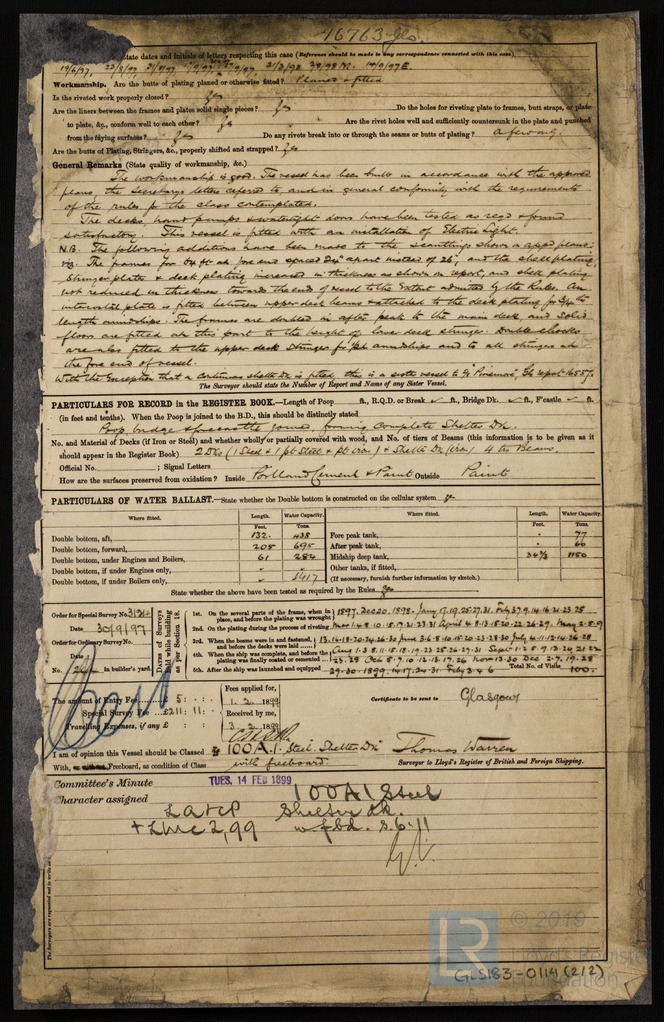 16763 gls
State dates and Initials of letters respecting this case (Reference should be made to any correspondence connected with this case).
Workmanship. Are the butts of plating planed or otherwise fitted? Planed & fitted
Is the riveted work properly closed? Yes
Are the liners between the frames and plates solid single pieces? Yes Do the holes for riveting plate to frames, butt straps, or plate
to plate, &c., conform well to each other? Yes Are the rivet holes well and sufficiently countersunk in the plate and punched
from the faying surfaces? Yes Do any rivets break into or through the seams or butts of plating? a few only.
Are the butts of Plating, Stringers, &c., properly shifted and strapped? Yes
General Remarks (State quality of workmanship, &c.)
The workmanship is good. The vessel has been built in accordance with the approved
plans, the Secretarys letters referred to and in general conformity with the requirements
of the rules for the class contemplated.
The decks hand pumps & watertight doors have been tested as reqd & found
satisfactory. This vessel is fitted with an installation of Electric Light.
N.B. The following additions have been made to the scantlings shown on appd plans:
viz. The frames for 64 ft at fore end spaced 24" apart instead of 26", and the shell plating,
Stringer plate & deck plating increased in thickness as shown on report, and shell plating
not reduced in thickness toward the end of vessel to the Extent admitted by the Rules. An
intercostal plate is fitted between upper deck beams & attached to the deck plating for 3/4 the
length amidships. The frames are doubled in after peak to the main deck, and solid
floors are fitted at this part to the height of lower deck stringer. Double chocks
are also fitted to the upper deck Stringer for amidships and to all stringers at
the fore end of vessel.
With the Exception that a continuous shelter Dk is fitted, this is a sister vessel to
The Surveyor should state the Number of Report and Name of any Sister Vessel.
PARTICULARS FOR RECORD in the REGISTER BOOK.—Length of Poop ft., R.Q.D. or Break ft., Bridge Dk. ft., F'castle ft.
(in feet and tenths). When the Poop is joined to the B.D., this should be distinctly stated
Poop, bridge & forecastle joined, forming Complete Shelter Dk.
No. and Material of Decks (if Iron or Steel) and whether wholly or partially covered with wood, and No. of tiers of Beams (this information is to be given as it
should appear in the Register Book) 2 Dks (1 Steel & 1 pt Steel & pt iron) & Shelter Dk (Iron) 4 trs Beams.
Official No. ; Signal Letters
How are the surfaces preserved from oxidation? Inside Portland Cement & Paint Outside Paint
PARTICULARS OF WATER BALLAST.—State whether the Double bottom is constructed on the cellular system yes
Where fitted. Length. Water Capacity. Where fitted. Length. Water Capacity.
Feet. Tons. Feet. Tons.
Double bottom, aft, 132. 438 Fore peak tank, 77
Double bottom, forward, 205 695 After peak tank, 66
Double bottom, under Engines and Boilers, 61 284 Midship deep tank, 1150
Double bottom, if under Engines only, Other tanks, if fitted,
Double bottom, if under Boilers only, 1417 (If necessary, furnish further information by sketch.)
State whether the above have been tested as required by the Rules Yes
Order for Special Survey No. 3121
Date 30/9/97
Order for Ordinary Survey No.
Date
No. in builder's yard.
Dates of Surveys held while building as per Section 18.
1st. On the several parts of the frame, when in place, and before the plating was wrought
2nd. On the plating during the process of riveting
3rd. When the beams were in and fastened, and before the decks were laid
4th. When the ship was complete, and before the plating was finally coated or cemented
5th. After the ship was launched and equipped
Total No. of Visits 100.
The amount of Entry Fee £ 5 : :
Special Survey Fee £211: 11:
Travelling Expenses, if any £ : :
Fees applied for,
1. 2. 1899
Received by me,
3. 2. 1899
Certificate to be sent to Glasgow
I am of opinion this Vessel should be Classed 100A.1. Steel. Shelter Dk Thomas Warren
With, Freeboard, as condition of Class with freeboard. Surveyor to Lloyd's Register of British and Foreign Shipping.
Committee's Minute TUES. 14 FEB 1899
Character assigned 100A1 Steel
LA & CP Shelter Dk.
+ LMC 2,99 w fbd.
The Surveyors are requested not to write
© 2019
Lloyd's Register
Foundation
LR
GLS183-0114 (2/2)